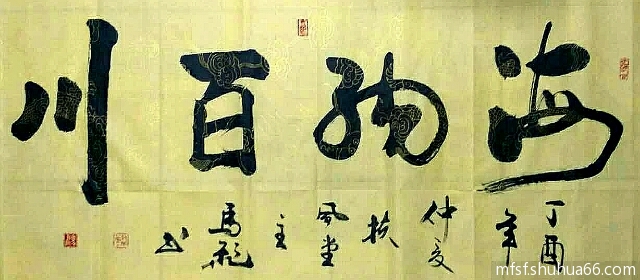 海納百川
丁酉
年
仲夏
扶
風堂
主
馬
书
mfsf.shuhua66.com